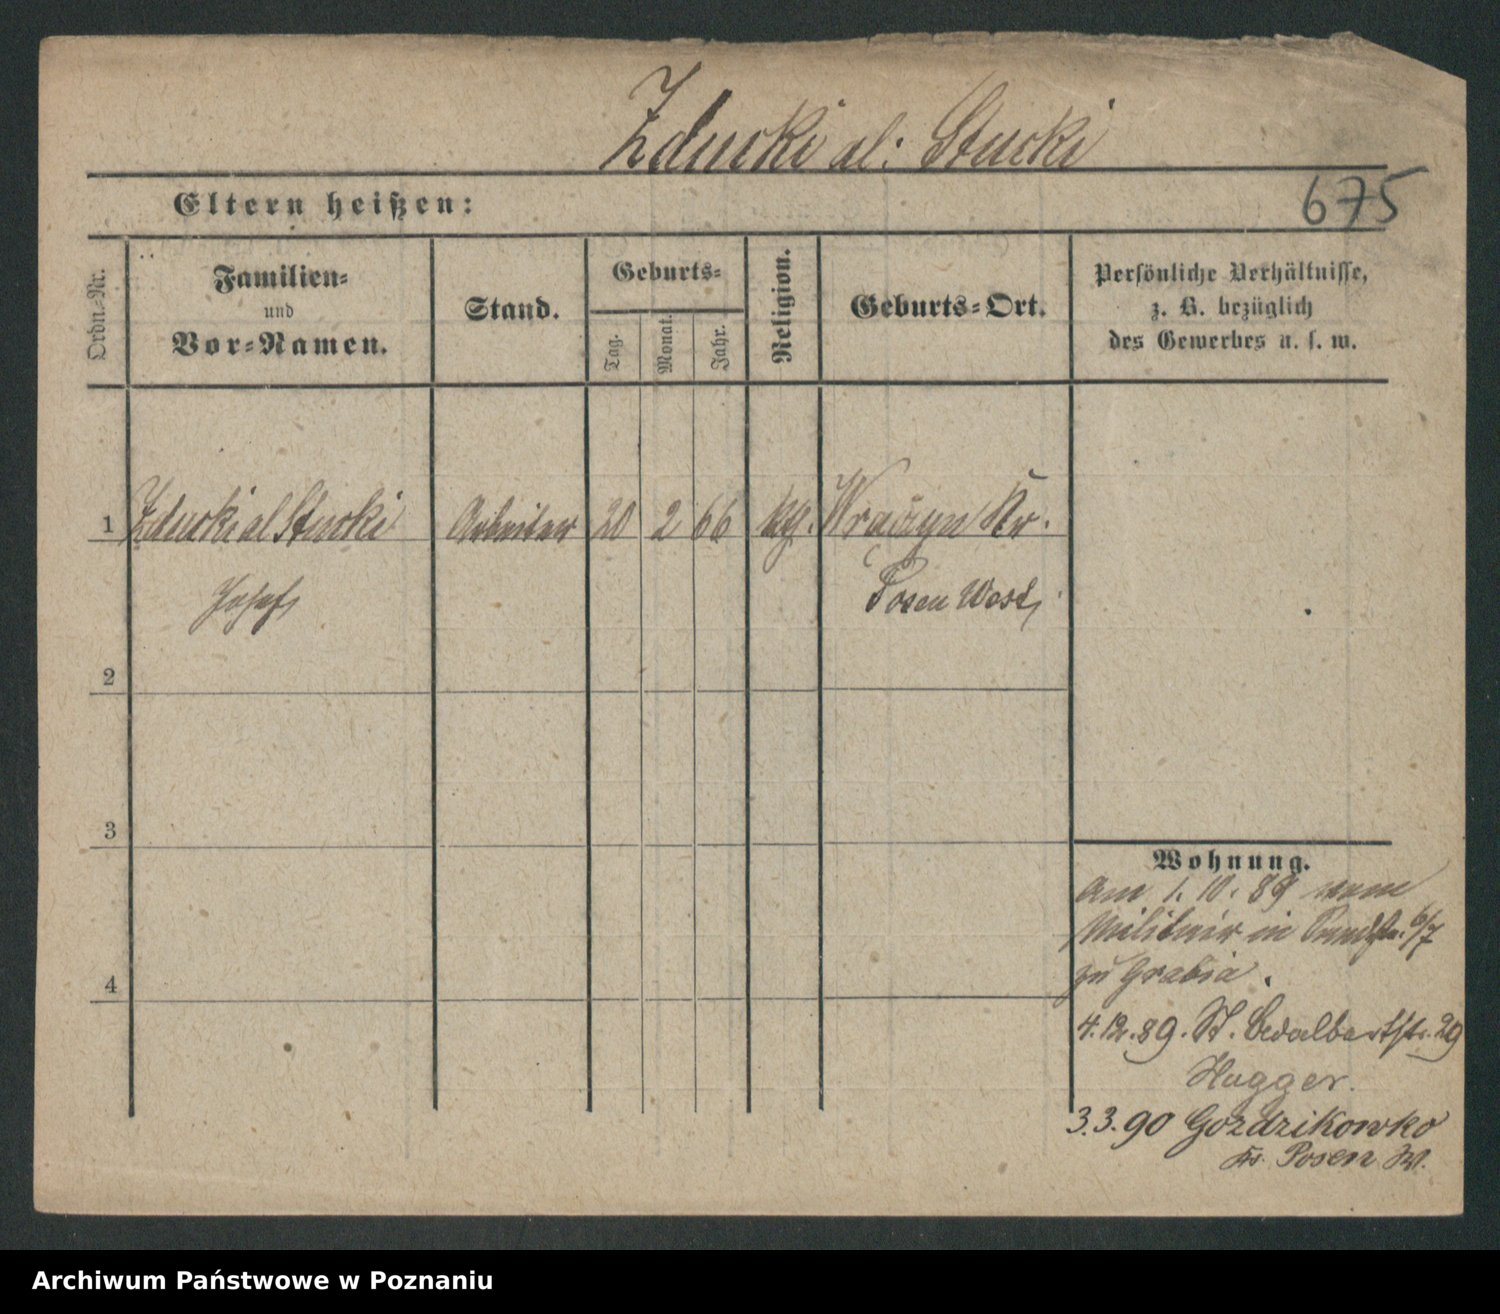 Zducki al: Stucki
Eltern heißen:
675
Ordn.-Nr.
Familien-
und
Vor-Namen.
Stand.
Geburts-
Tag.
Monat.
Jahr.
Religion.
Geburts-Ort.
Persönliche Verhältnisse,
z. B. bezüglich
des Gewerbes u. s. w.
1 Zducki al Stucki Arbeiter 20 2 66 kth. Wrączyn Kr.
Josef Posen West
2
3
4
Wohnung.
Am 1. 10. 89 vom
Militair in 6/7
zu Grabia.
4.12.89. St. Adalbertstr. 29
Hagger.
3.3.90 Gozdzikowko
Kr. Posen W.
Archiwum Państwowe w Poznaniu